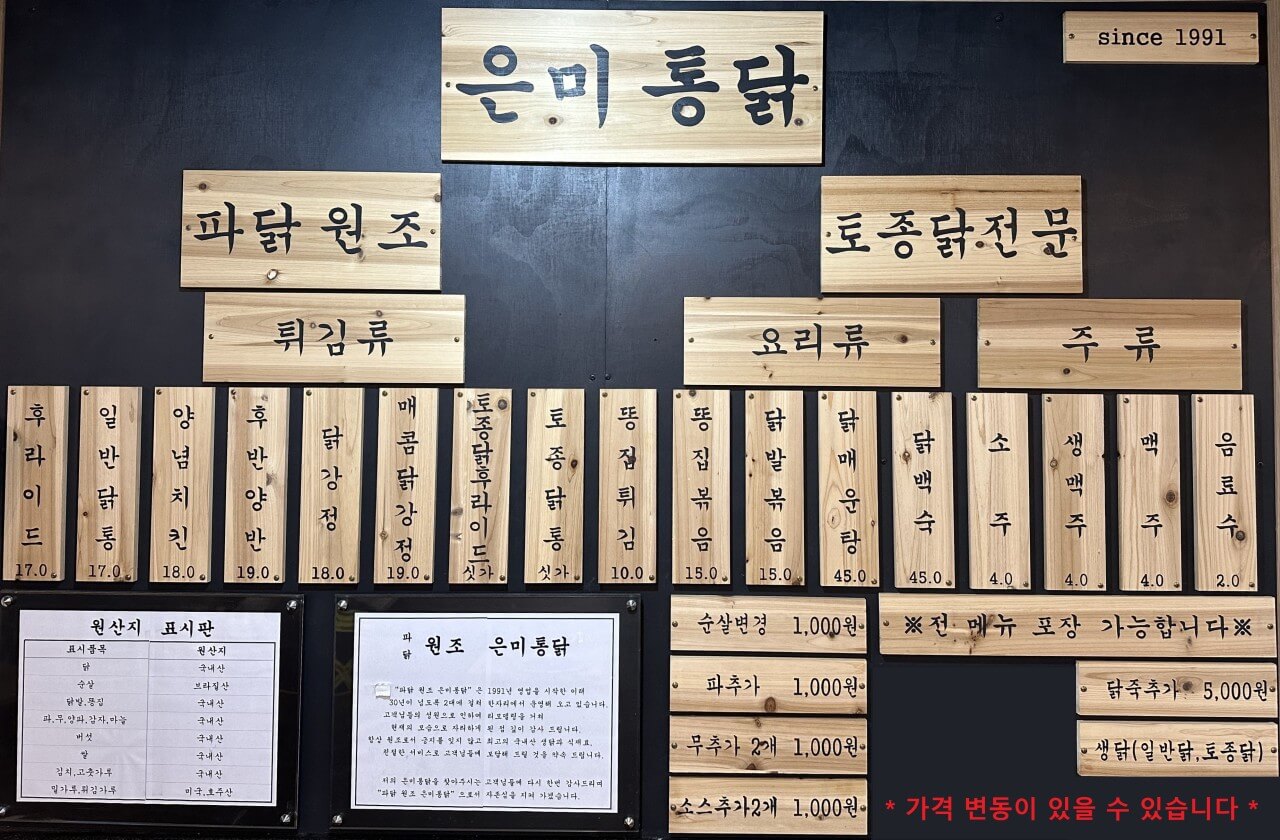 since 1991
은미통닭
파닭원조
토종닭전문
튀김류
요리류
주류
후라이드 17.0
일반닭통 17.0
양념치킨 18.0
후반양반 19.0
닭강정 18.0
매콤닭강정 19.0
토종닭후라이드 싯가
토종닭통 싯가
똥집튀김 10.0
똥집볶음 15.0
닭발볶음 15.0
닭매운탕 45.0
닭백숙 45.0
소주 4.0
생맥주 4.0
맥주 4.0
음료수 2.0
원산지 표시판
표시품목 원산지
닭 국내산
순살 브라질산
닭발,똥집 국내산
파,무,양파,감자,마늘 국내산
버섯 국내산
쌀 국내산
김치,고춧가루 국내산
밀가루,튀김가루 미국,호주산
파닭 원조 은미통닭
"파닭 원조 은미통닭" 은 1991년 영업을 시작한 이래
30년이 넘도록 2대에 걸쳐 한자리에서 운영해 오고 있습니다.
고객님들의 성원으로 인하여 리모델링을 거쳐
현재의 모습으로 자리하게 된 점 깊이 감사 드립니다.
항상 원조로서 긍지를 잊지 않고 최고의 국내산 생닭과 식재료,
친절한 서비스로 고객님들께 보답해 드릴 것을 약속 드립니다.
저희 은미통닭을 찾아주시는 고객님들께 다시 한번 감사드리며
"파닭 원조 은미통닭" 으로서 자존심을 지켜 가겠습니다.
순살변경 1,000원
파추가 1,000원
무추가 2개 1,000원
소스추가2개 1,000원
※전 메뉴 포장 가능합니다※
닭죽추가 5,000원
생닭(일반닭,토종닭)
* 가격 변동이 있을 수 있습니다 *